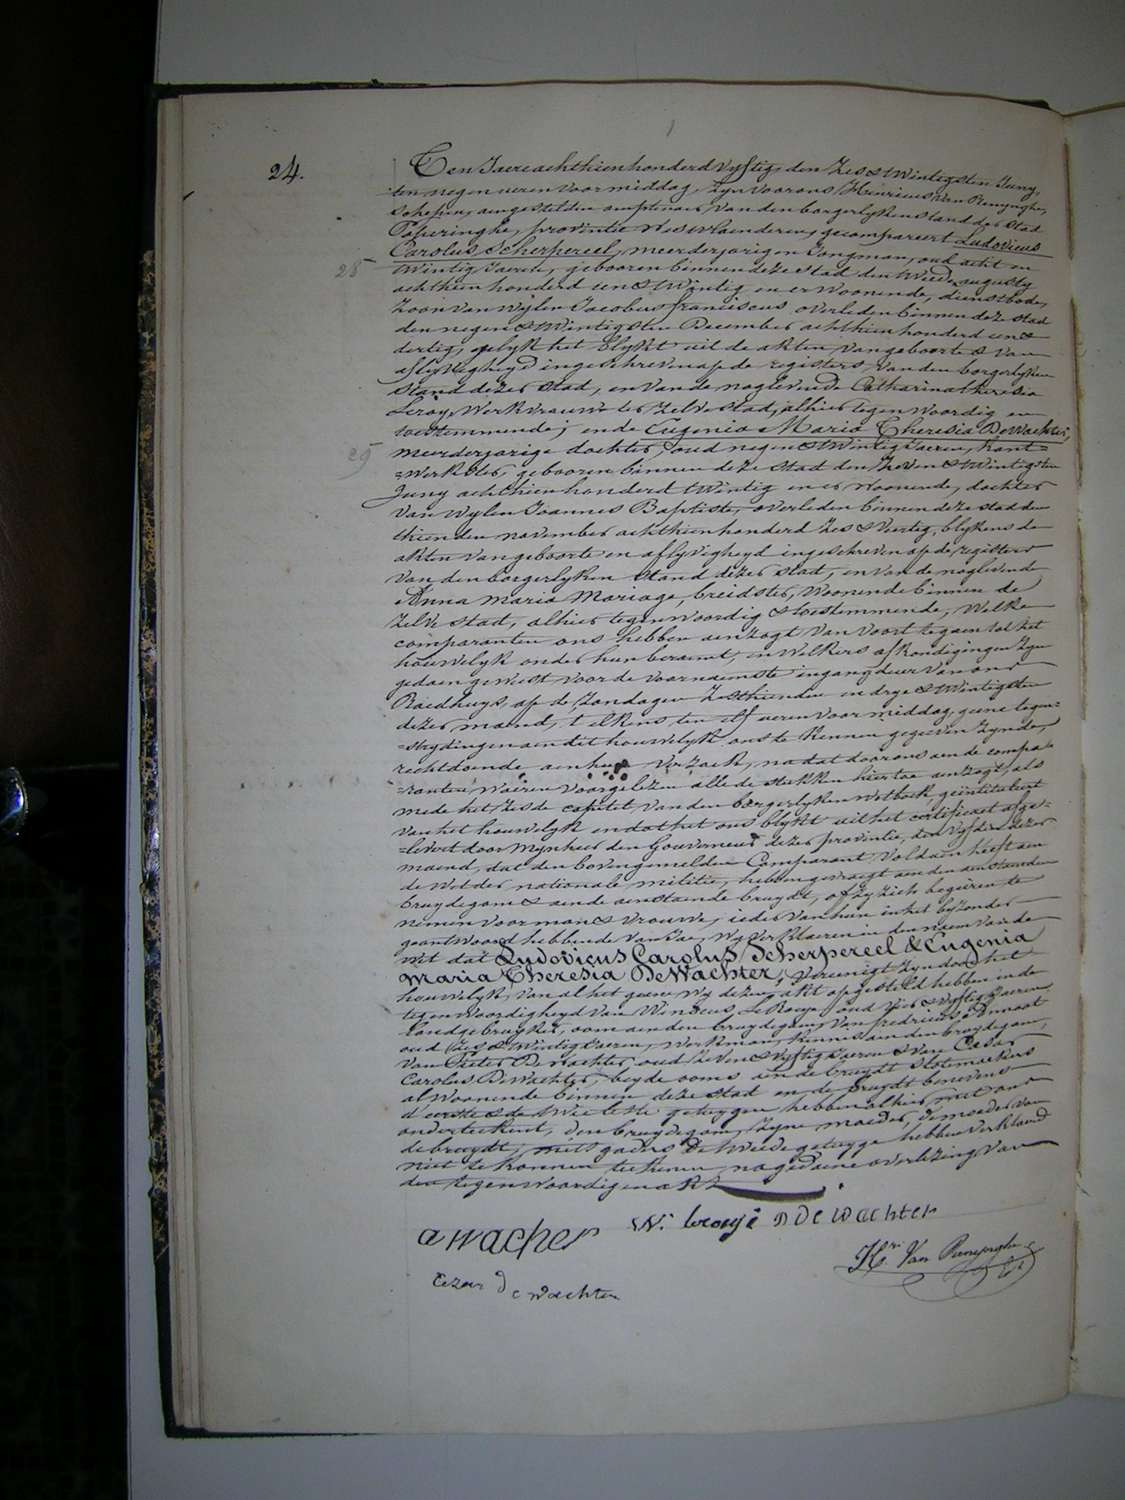 24.
Ten Jaere achthien honderd vyftig, den zes & twintigsten Juny,
ten negen ueren voormiddag, zyn voor ons Henricus Van Renynghe,
Schepen, aengestelden amptenaer van den borgerlyken stand der stad
Poperinghe, provintie Westvlaenderen, gecompareert Ludovicus
Carolus Scherpereel, meerderjarigen Jongman, oud acht en
28 twintig Jaeren, gebooren binnen deze stad den augusty
achthien honderd een & twintig en er woonende, dienstbode,
zoon van wylen Jacobus franciscus overleden binnen deze stad
den negen & twintigsten December achthien honderd een &
dertig, gelyk het blykt uit de akten van geboorte & van
aflyvigheyd ingeschreven op de registers van den borgerlyken
stand dezer stad, en van de noglevende Catharina theresia
Leroy, werkvrouwe ter zelve stad, alhier tegenwoordig en
toestemmende; ende Eugenia Maria Theresia DeWachter,
29 meerderjarige dochter, oud negen & twintig Jaeren, kant=
=werkster, gebooren binnen deze stad den zeven & twintigsten
Juny achthien honderd twintig en er woonende, dochter
van wylen Joannes Baptiste, overleden binnen deze stad den
thienden november achthien honderd zes & veertig, blykens de
akten van geboorte en aflyvigheyd ingeschreven op de registers
van den borgerlyken stand dezer stad, en van de noglevende
Anna Maria Mariage, breidster, woonende binnen de
zelve stad, alhier tegenwoordig & toestemmende, Welke
comparanten ons hebben aenzogt van voort te gaen tot het
houwelyk onder hun beraemt, en welkers afkondigingen zyn
gedaen geweest voor de voornaemste ingangdeur van ons
Raedhuys, op de zondagen zesthienden en drye & twintigsten
dezer maend, t'elkens ten elf ueren voormiddag, geene tegen=
=strydingen aen dit houwelyk ons te kennen gegeven zynde,
rechtdoende aen hun verzoek, nadat door ons aen de compa=
=ranten waeren voorgelezen alle de stukken hiertoe aenzogt, als
mede het zesde capitel van den borgerlyken wetboek geintituleert
van het houwelyk en dat het ons blykt uit het certificaet afge=
=levert door mynheer den Gouverneur dezer provintie, den vyfden dezer
maend, dat den bovengemelden Comparant voldaen heeft aen
de wet der nationale militie, hebben gevraegt aen den aenstaenden
bruydegom & aende aenstaende bruydt, of zy zich begeiren te
nemen voor man & vrouwe; ieder van hun in het byzonder
geantwoord hebbende van Jae, wy verklaeren in den naem van de
wet dat Ludovicus Carolus Scherpereel & Eugenia
Maria Theresia DeWachter, vereenigt zyn door het
houwelyk, van al het geene wy dezen akt opgesteld hebben in de
tegenwoordigheyd van Winocus Le Rouge oud & vyftig Jaeren
landgebruyker, oom aen den bruydegom, van fredricus Denoot
oud zes & twintig Jaeren, werkman, kennis aen den bruydegom,
van Pieter De Wachter oud zeven & vyftig Jaeren & van Cesar
Carolus DeWachter, beyde ooms aen de bruydt slotemaekers
al woonende binnen deze stad en de bruydt benevens
d'eerste & de twee leste getuygen hebben alhier met ons
onderteekent, den bruydegom, zyne moeder, de moeder van
de bruydt, mits gaders de tweede getuyge hebben verklaerd
niet te konnen teekenen, na gedaene overlezing van
den tegenwoordigen akt
a wacher W. lerouje P De wachter
Cezar De wachter Hri Van Renynghe